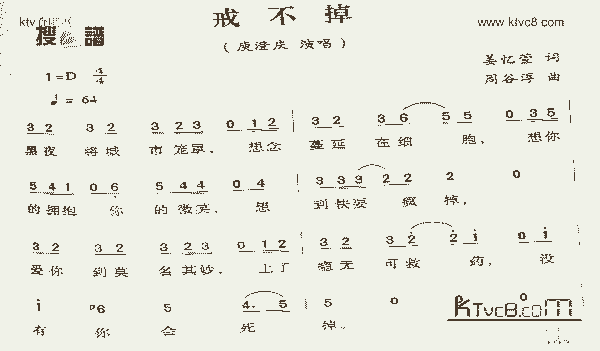 戒不掉
www.ktvc8.com
搜 谱
(庾澄庆 演唱)
姜忆萱 词
1=D 4/4
周谷淳 曲
♩= 64
3 2 3 2 3 2 3 0 1 2 3 2 3 6 5 5 0 3 5
黑夜 将城 市笼罩, 想念 蔓延 在细 胞, 想你
5 4 1 0 6 5 4 5 0 4 3 3 3 2 2 2 0
的拥抱 你 的微笑, 想 到快要 疯 掉,
3 2 3 2 3 2 3 0 1 2 3 2 3 2 2 1 0 1
爱你 到莫 名其妙, 上了 瘾无 可救 药, 没
1 6 5 4. 5 5 0 0
有 你 会 死 掉。
KTvc8.com